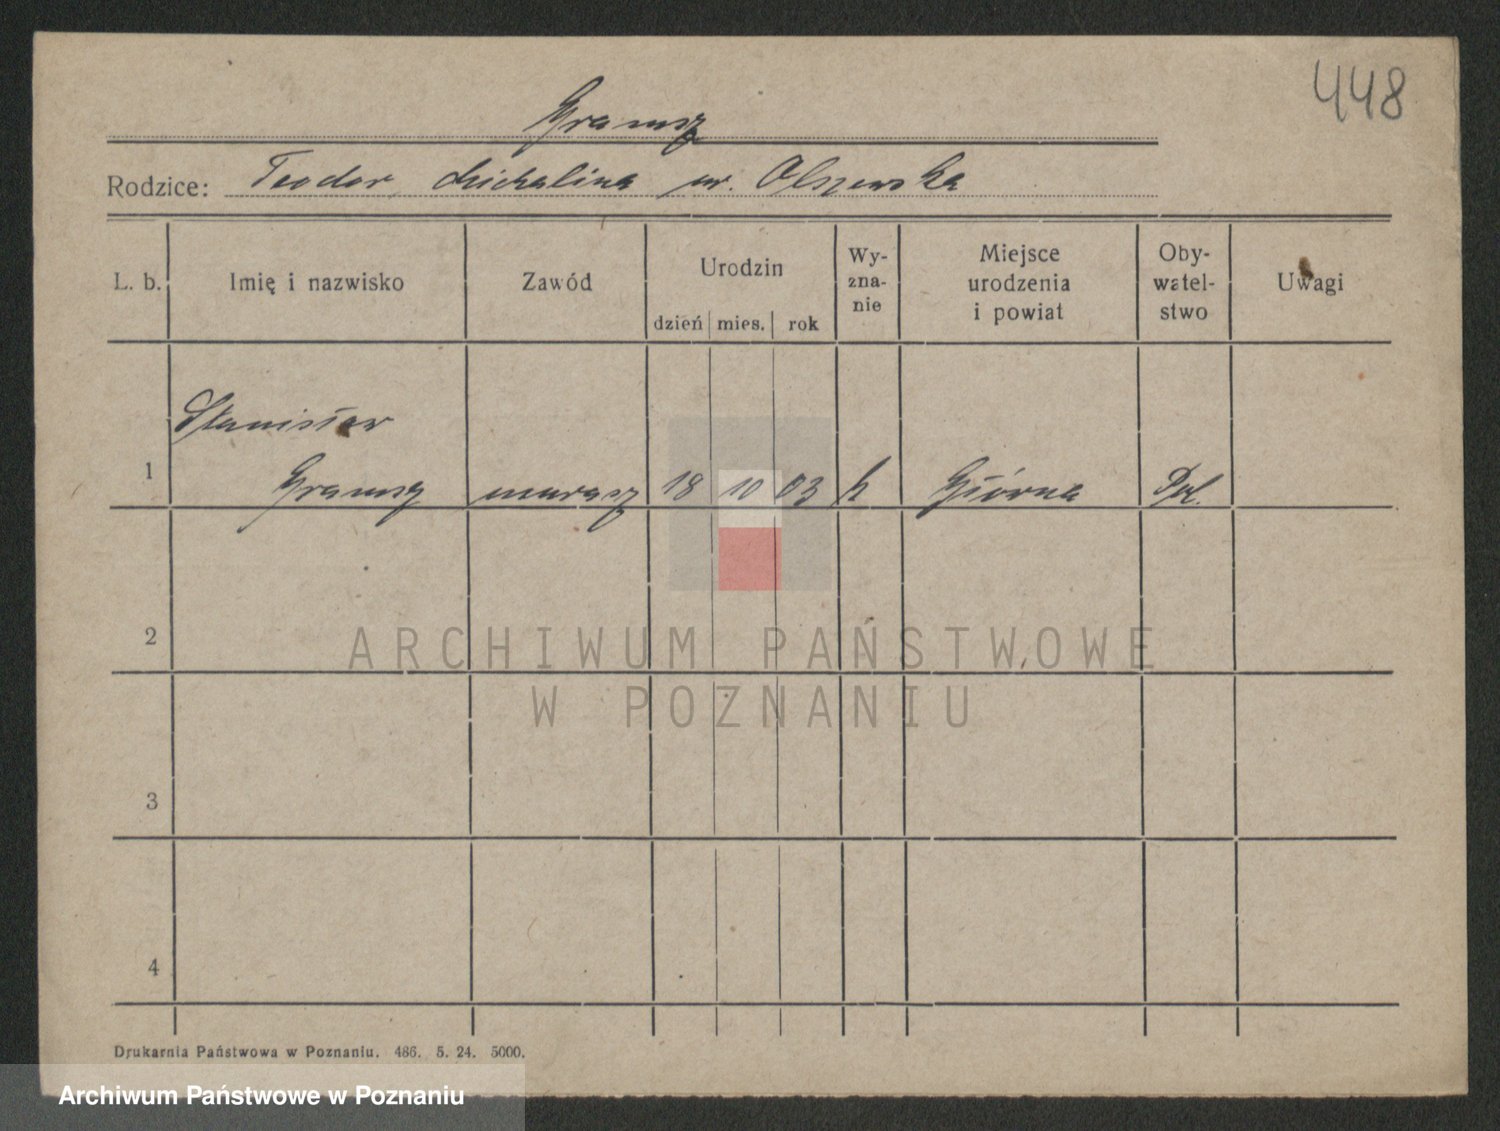 448
Gramsz
Rodzice: Teodor, Michalina ur. Olszewska
L. b.
Imię i nazwisko
Zawód
Urodzin
dzień mies. rok
Wy-
zna-
nie
Miejsce
urodzenia
i powiat
Oby-
watel-
stwo
Uwagi
Stanisław
1 Gramsz murarz 18 10 03 k Głórna Pol.
2
ARCHIWUM PAŃSTWOWE
W POZNANIU
3
4
Drukarnia Państwowa w Poznaniu. 486. 5. 24. 5000.
Archiwum Państwowe w Poznaniu